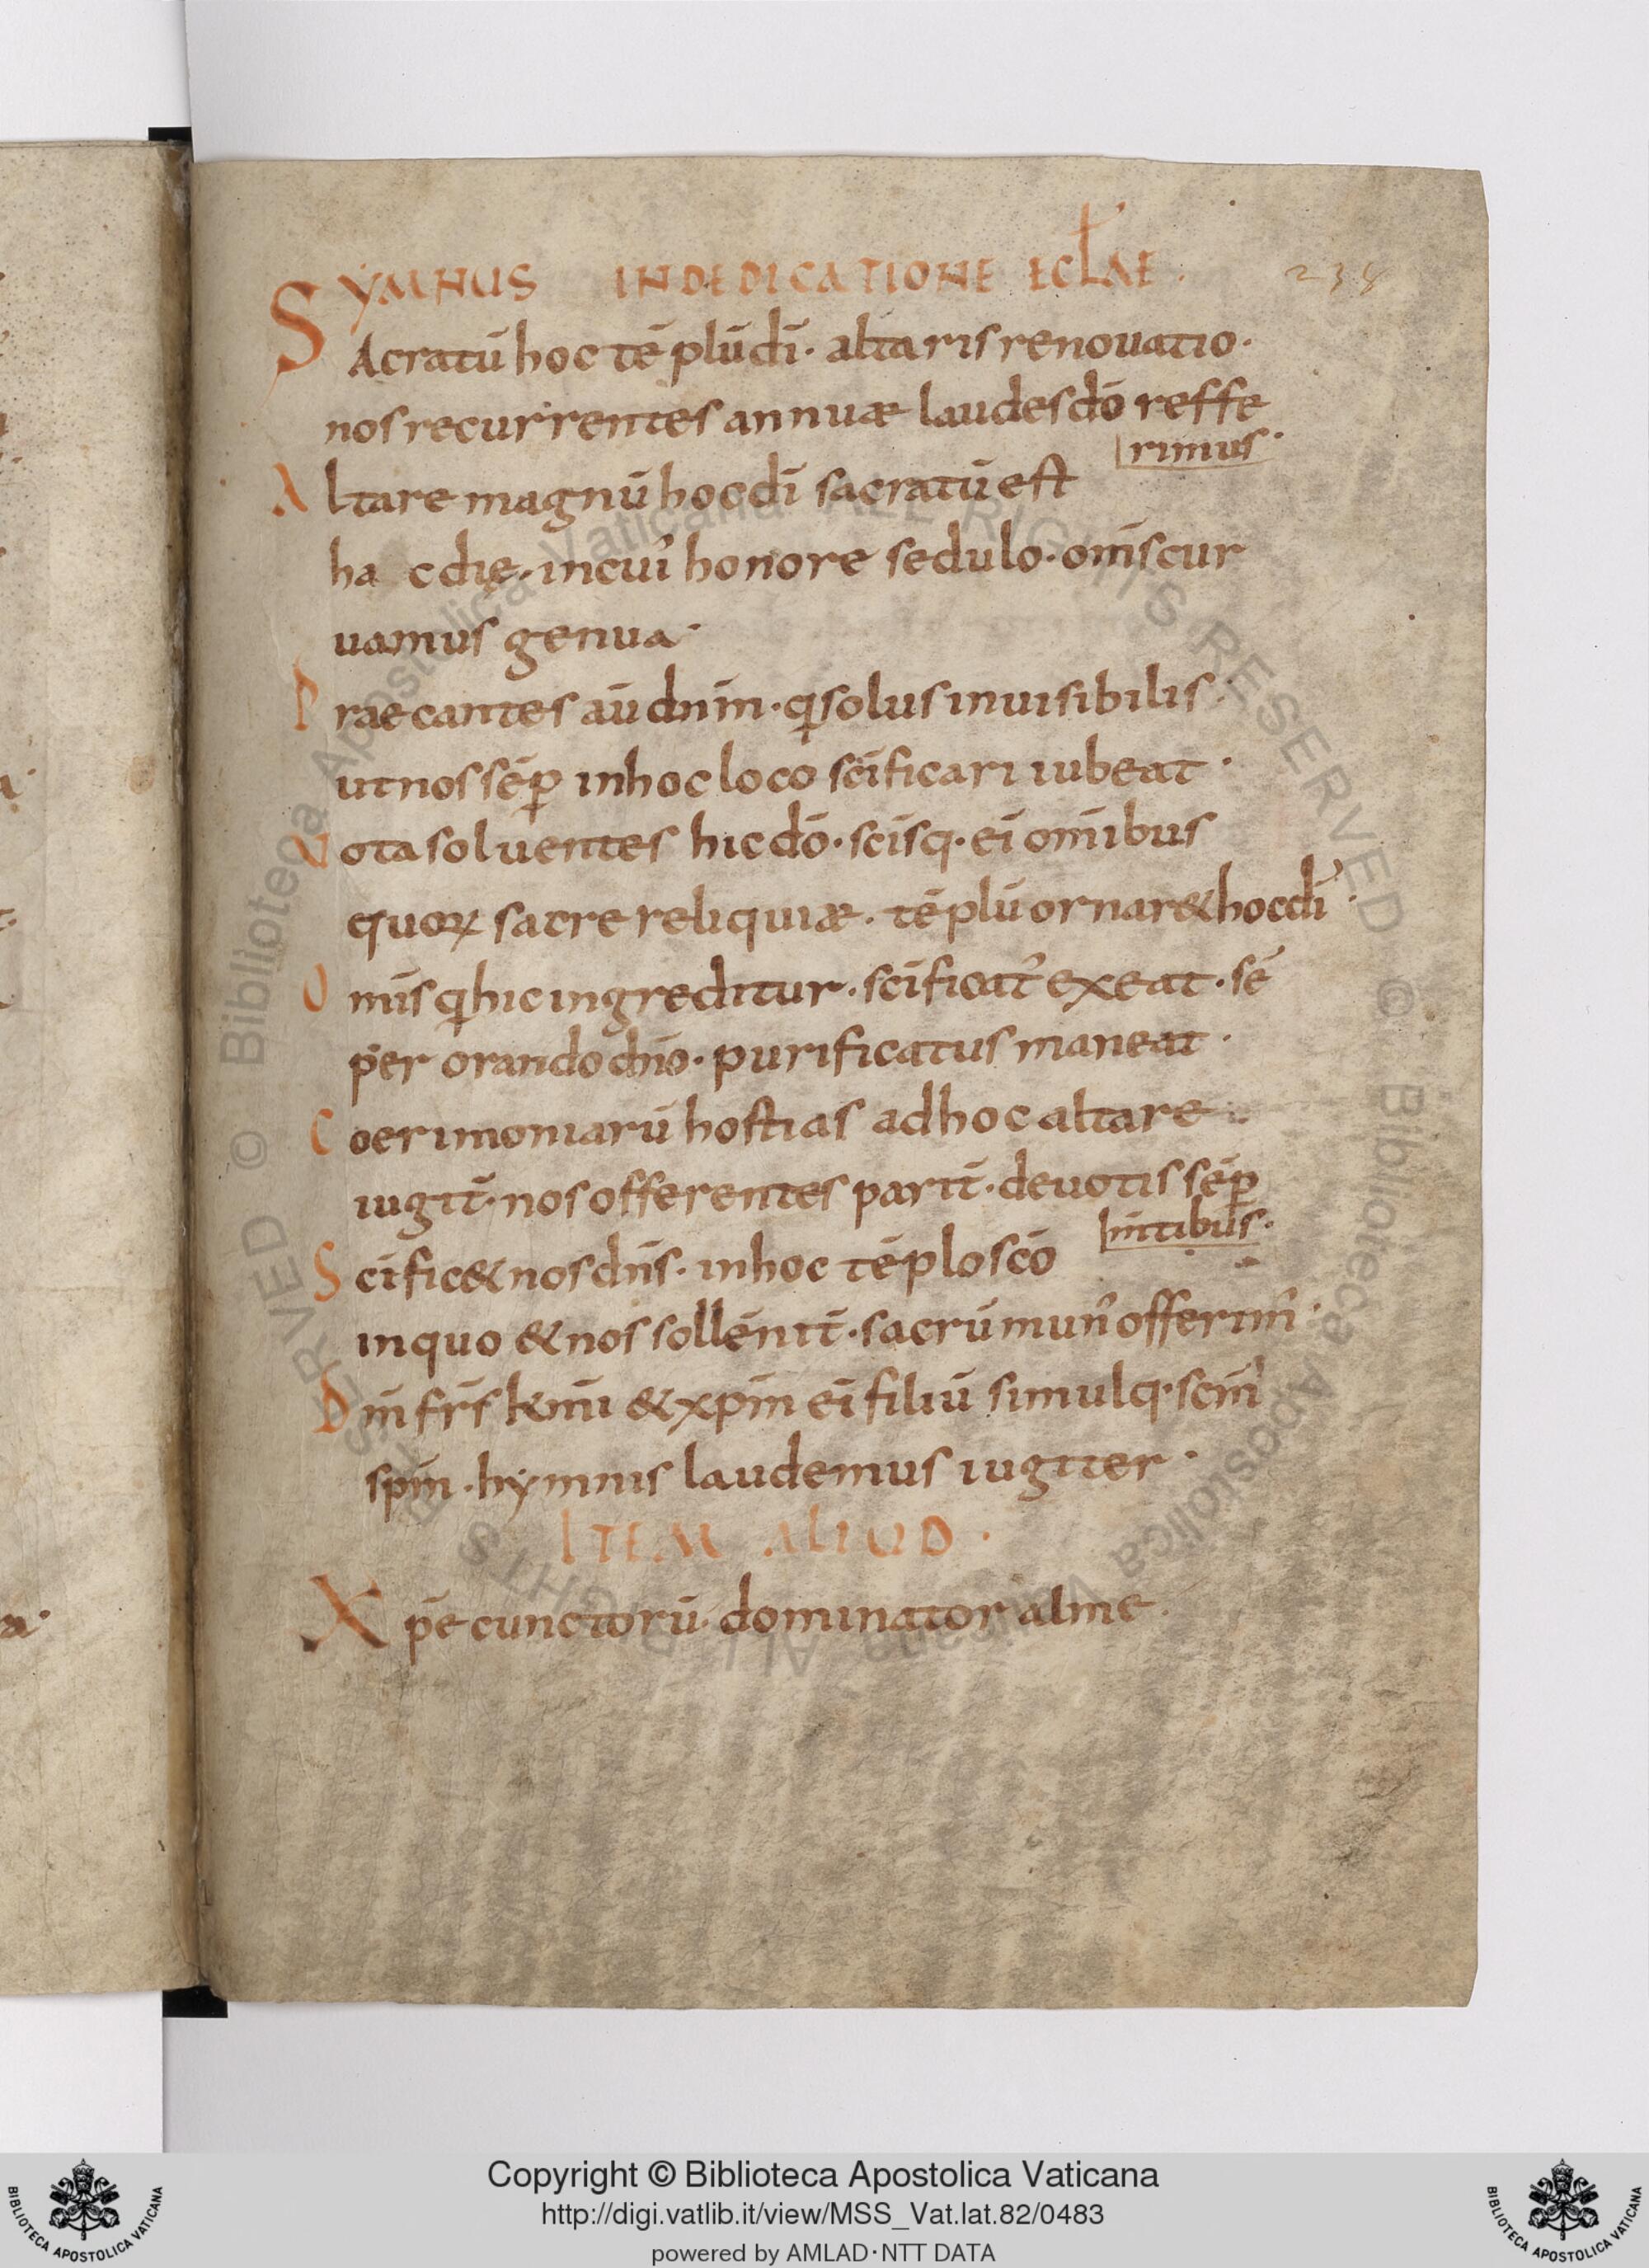 YMNUS IN DEDICATIONE ECLAE· 238
SAcratū hoc tēplū dī· altaris renouatio·
nos recurrentes annuæ laudes dō reffe
rimus·
Altare magnū hoc dī sacratū est
hac die· in cuī honore sedulo· om̄s cur
uamus genua·
Praecantes aū dn̄m· q solus inuisibilis·
ut nos sēp in hoc loco scīficari iubeat·
Vota soluentes hic dō· scīsq· eī om̄ibus
quoꝝ sacre reliquiæ· tēplū ornar& hoc dī·
Om̄is q hic ingreditur· scīficat̄ exeat· sē
per orando dn̄o· purificatus maneat·
Coerimoniarū hostias ad hoc altare
iugit̄· nos offerentes parit̄· deuotis sēp
m̄tibus·
Scīfic& nos dn̄s· in hoc tēplo scō
in quo & nos sollēnit̄· sacrū mun̄ offerim̄·
Dm̄ fr̄s km̄i & xpm̄ eī filiū simulq· scm̄
spm̄· hymnis laudemus iugiter·
ITEM ALIUD·
Xpē cunctorū dominator alme
Copyright © Biblioteca Apostolica Vaticana
http://digi.vatlib.it/view/MSS_Vat.lat.82/0483
powered by AMLAD·NTT DATA